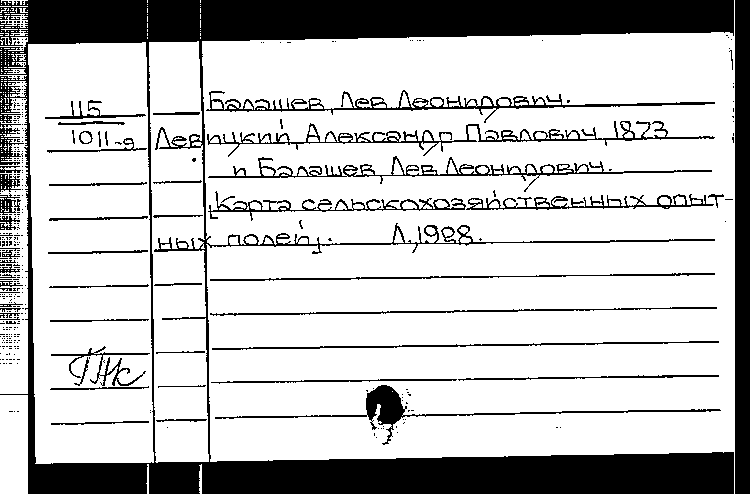 Балашев, Лев Леонидович.
115
1011-д
Левицкий, Александр Павлович, 1873
и Балашев, Лев Леонидович.
[Карта сельскохозяйственных опыт-
ных полей]. Л., 1928.
ГЖк